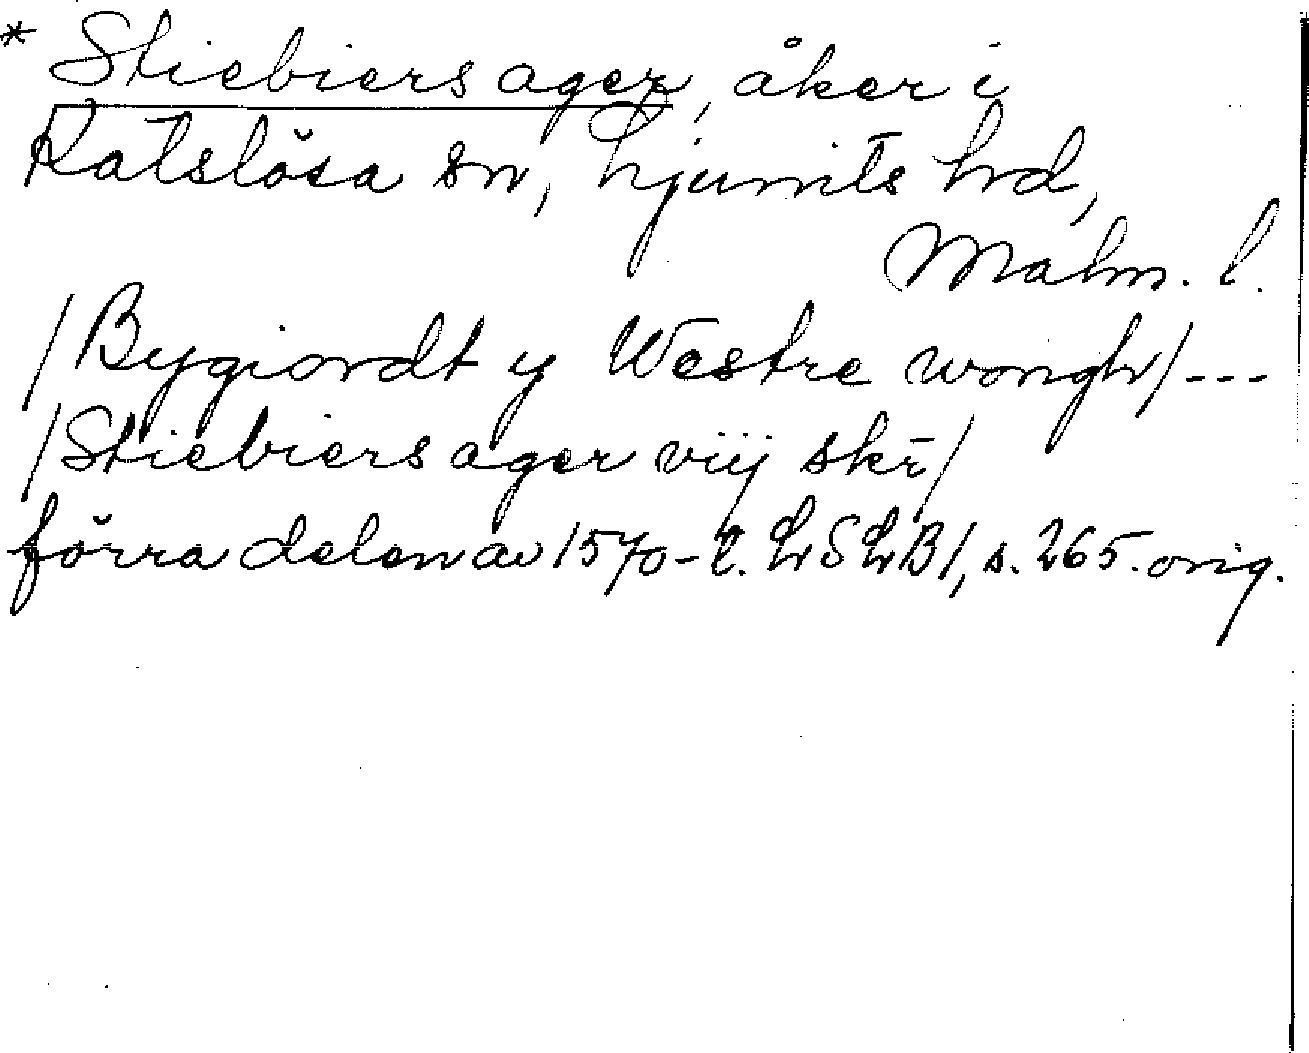 * Stiebiers ager, åker i
Katslösa sn, Ljunits hrd,
Malm. l.
/Bygiordt y Westre wongh/ ---
/Stiebiers ager viij skr̄/
förra delen av 1570-t. LSLB1, s. 265. orig.